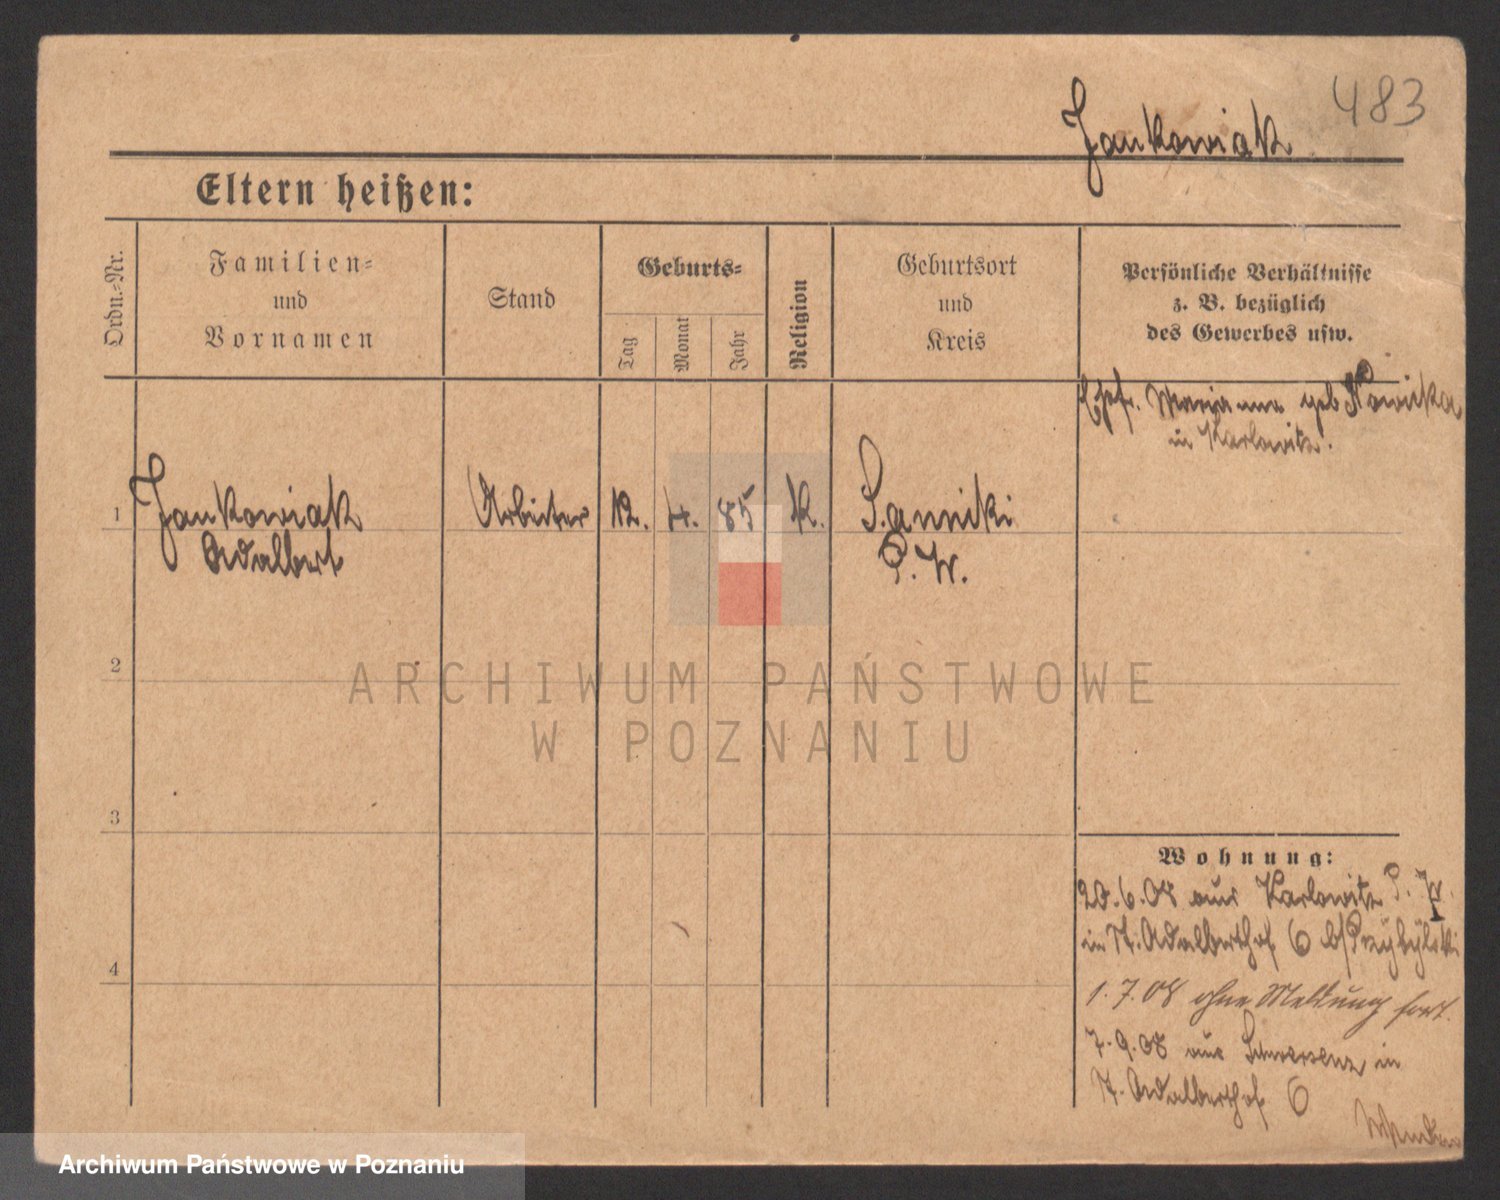 483
Jankowiak
Eltern heißen:
Ordn.-Nr.
Familien-
und
Vornamen
Stand
Geburts-
Tag
Monat
Jahr
Religion
Geburtsort
und
Kreis
Persönliche Verhältnisse
z. B. bezüglich
des Gewerbes usw.
Ehefr. Marianna geb Nowicka
in Karlowitz.
1
Jankowiak Arbeiter 12. 4. 85 K. Sanniki
Adalbert P. W.
2
ARCHIWUM PAŃSTWOWE
W POZNANIU
3
Wohnung:
20.6.08 aus Karlowitz P. W.
in St. Adalberthof 6 b/Przybylski
4
1.7.08 ohne Meldung fort.
7.9.08 aus Schwersenz in
St. Adalberthof 6
Archiwum Państwowe w Poznaniu